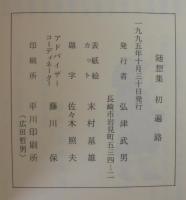 随想集　初遍路
一九九五年十月三十日発行
発行者　弘津武男
長崎市岩見町五三四-二
表紙絵
カット　末村基雄
題字　佐々木照夫
アドバイザー
コーディネーター　藤川保
印刷所　平川印刷所
（広田哲男）